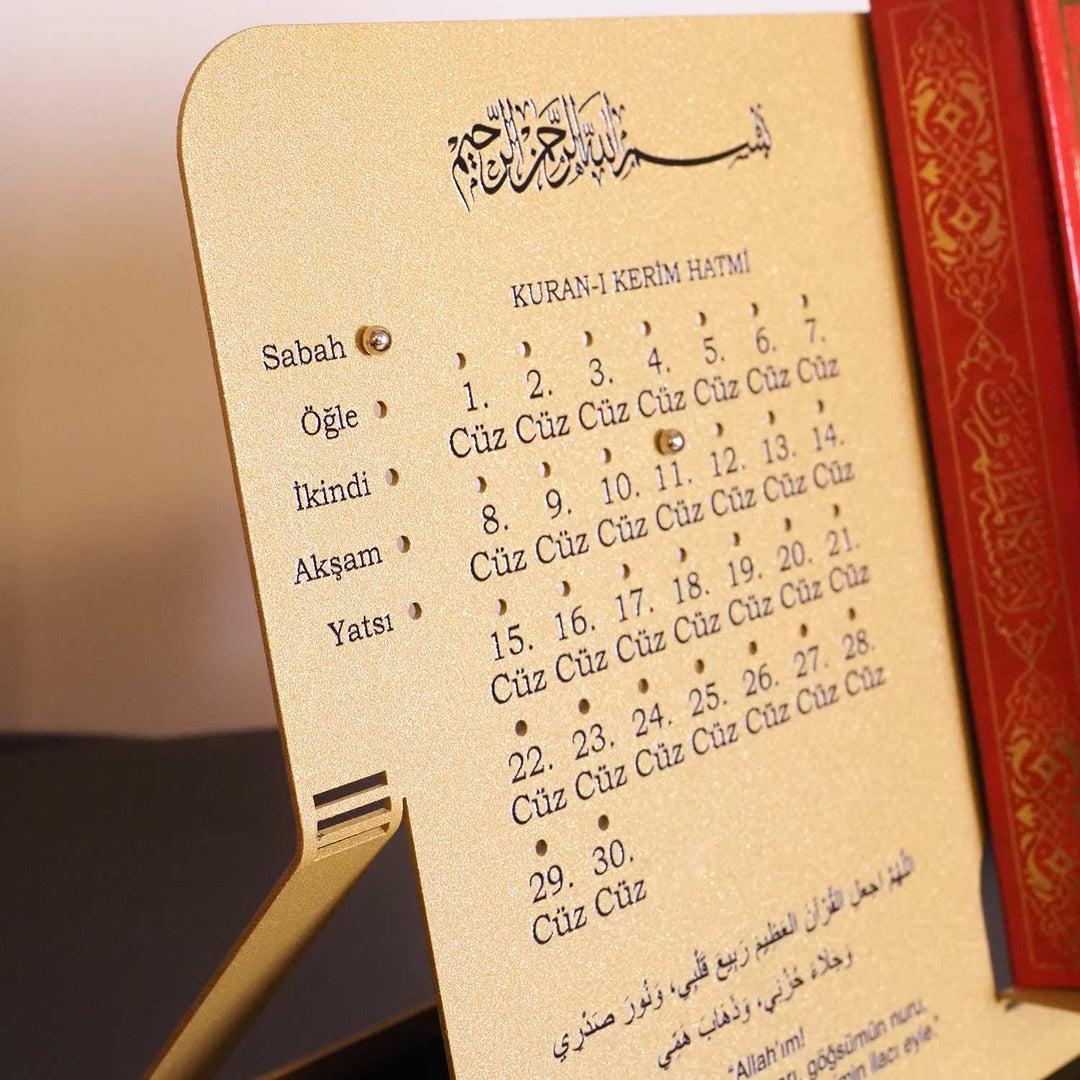 بسم الله الرحمن الرحيم
KURAN-I KERİM HATMİ
Sabah
Öğle
İkindi
Akşam
Yatsı
1. 2. 3. 4. 5. 6. 7.
Cüz Cüz Cüz Cüz Cüz Cüz Cüz
8. 9. 10. 11. 12. 13. 14.
Cüz Cüz Cüz Cüz Cüz Cüz Cüz
15. 16. 17. 18. 19. 20. 21.
Cüz Cüz Cüz Cüz Cüz Cüz Cüz
22. 23. 24. 25. 26. 27. 28.
Cüz Cüz Cüz Cüz Cüz Cüz Cüz
29. 30.
Cüz Cüz
اللَّهُمَّ اجعل القُرْآنَ العَظِيمَ رَبِيعَ قَلْبِي، وَنُورَ صَدْرِي
وَجَلَاءَ حُزْنِي، وَذَهَابَ هَمِّي
"Allah'ım!
göğsümün nuru,
ilacı eyle."